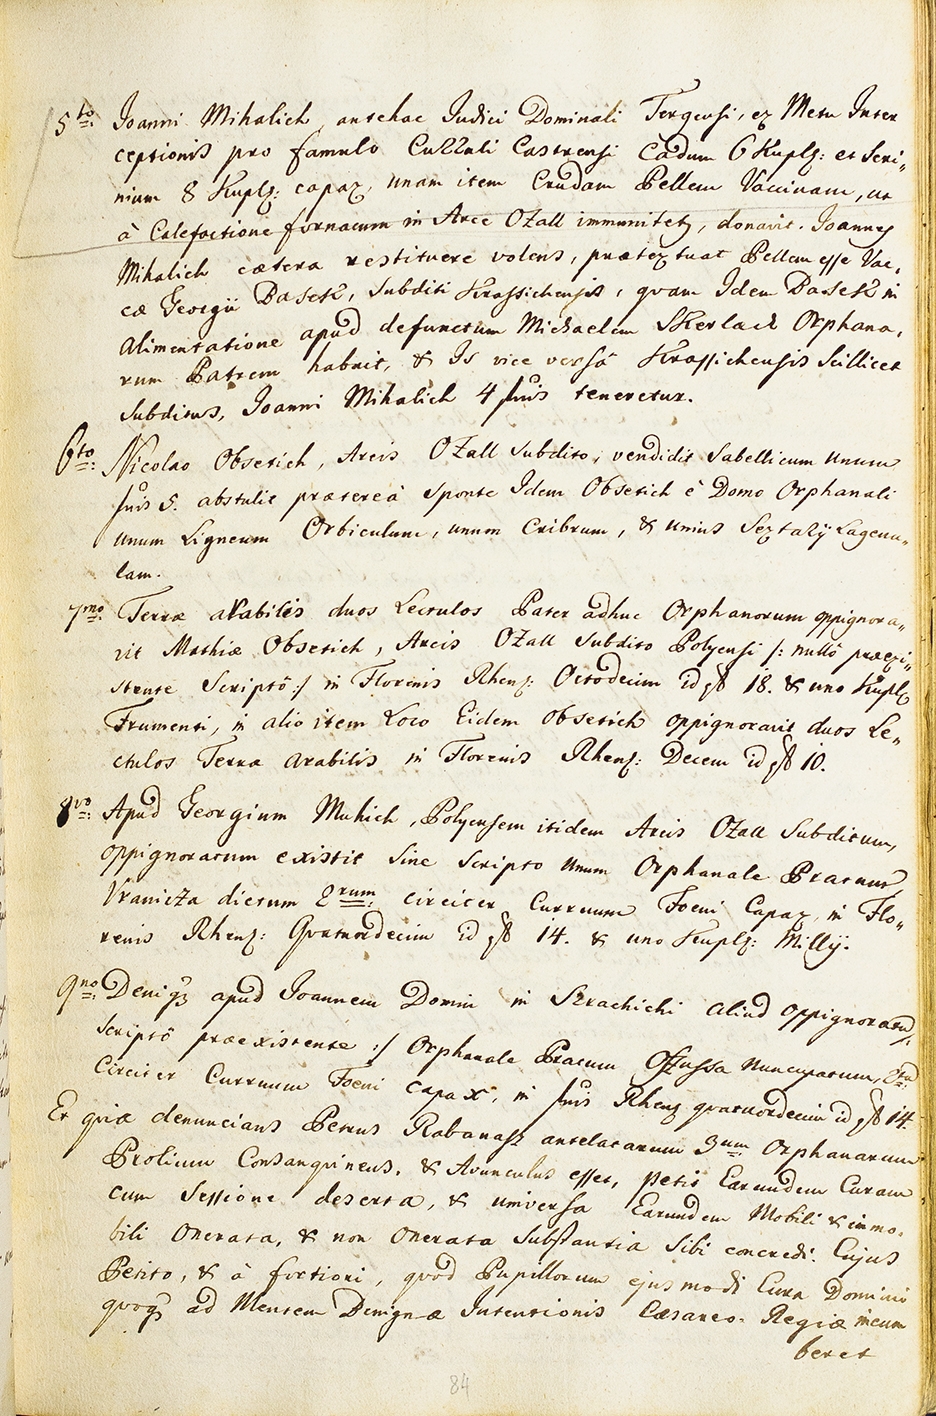 5to Joanni Mihalich antehac Judici Dominali Fergensi, ex Metu Inter
ceptionis pro famulo Cuzzuli Castrensi Cadum 6 Kuplz: et Scri„
nium 8 Kuplz: capax, unam item Crudam Pellem Vaccinam, ut
à Calefactione fornacum in Arce Ozall immunitetr, donavit. Joannes
Mihalich cætera restituere volens, prætextuat Pellem esse Vac„
cæ Georgii Basek, Subditi Krassichensis, quam Idem Basek in
Alimentatione apud defunctum Michaelem Skerlach Orphana„
rum Patrem habuit, & Is vice versâ Krassichensis Scillicet
Subditus, Joanni Mihalich 4 fnis teneretur.
6to Nicolao Obsetich, Arcis Ozall Subdito, vendidit Sabellicum unum
fnis 5. abstulit prætereà Sponte Idem Obsetich è Domo Orphanali
unum Ligneum Orbiculum, unum Cribrum, & unius Septazÿ Lagenu„
lam.
7mo Terræ arabilis duos Lectulos Pater adhuc Orphanorum oppignora„
vit Mathiæ Obsetich, Arcis Ozall Subdito Polyensi /: nullô præexi„
stente Scriptô :/ in Florenis Rhenz: Octodecim id est 18. & uno Kuplz
Frumenti, in alio item Loco Eidem Obsetich oppignoravit duos Le„
ctulos Terræ arabilis in Florenis Rhenz: Decem id est 10.
8vo Apud Georgium Muhich, Polyensem itidem Arcis Ozall Subditum,
oppignoratum existit Sine Scripto unum Orphanale Pratum,
Vranicza dictum 2rum circiter Curruum Foeni Capax, in Flo„
renis Rhenz: Quatuordecim id est 14. & uno Kuplz: Millÿ.
9no Denique apud Joannem Domin in Strachichi aliud oppignoratu /:
Scriptô præexistente :/ Orphanale Pratum Ossussa nuncupatum,
Circiter Curruum Foeni capax, in fnis Rhenz quatuordecim id est 14.
Et quia denuncians Petrus Rabanass antelatarum 3um Orphanarum
Prolium Consanguineus, & Avunculus esset, petit Earundem Curam
cum Sessione deserta, & universa Earundem Mobili & immo„
bili Onerata, & non Onerata Substantia Sibi concredi. Cujus
Petito, & à fortiori, quod Pupillorum ejusmodi Cura Dominio
quoque ad Mentem Benignæ Intentionis Cæsareo. Regiæ incum
beret
84